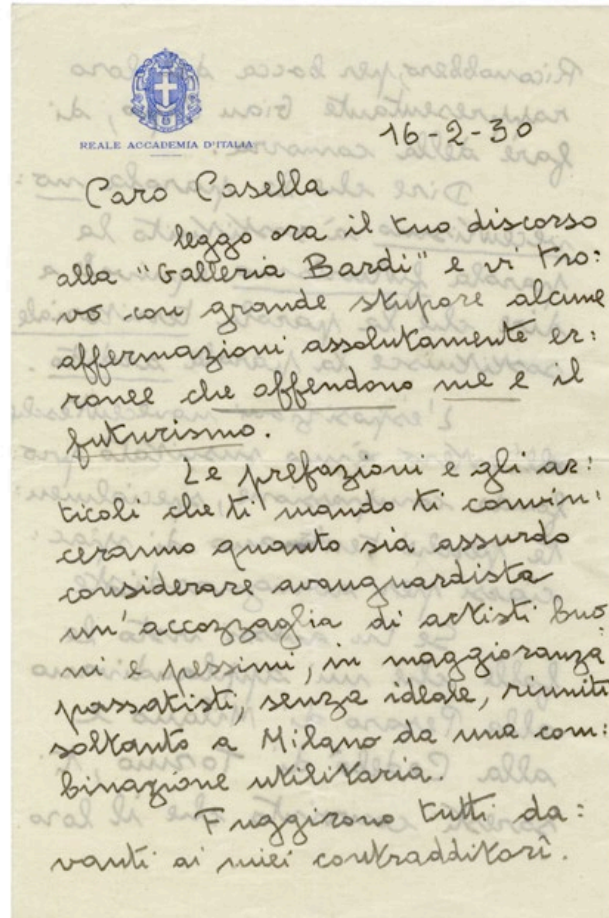 REALE ACCADEMIA D'ITALIA
16-2-30
Caro Casella
leggo ora il tuo discorso
alla "Galleria Bardi" e vi tro:
vo con grande stupore alcune
affermazioni assolutamente er:
ronee che offendono me e il
futurismo.
Le prefazioni e gli ar:
ticoli che ti mando ti convin:
ceranno quanto sia assurdo
considerare avanguardista
un'accozzaglia di artisti buo
ni e pessimi, in maggioranza
passatisti, senza ideale, riuniti
soltanto a Milano da una com:
binazione utilitaria.
Fuggirono tutti da:
vanti ai miei contradditorî.